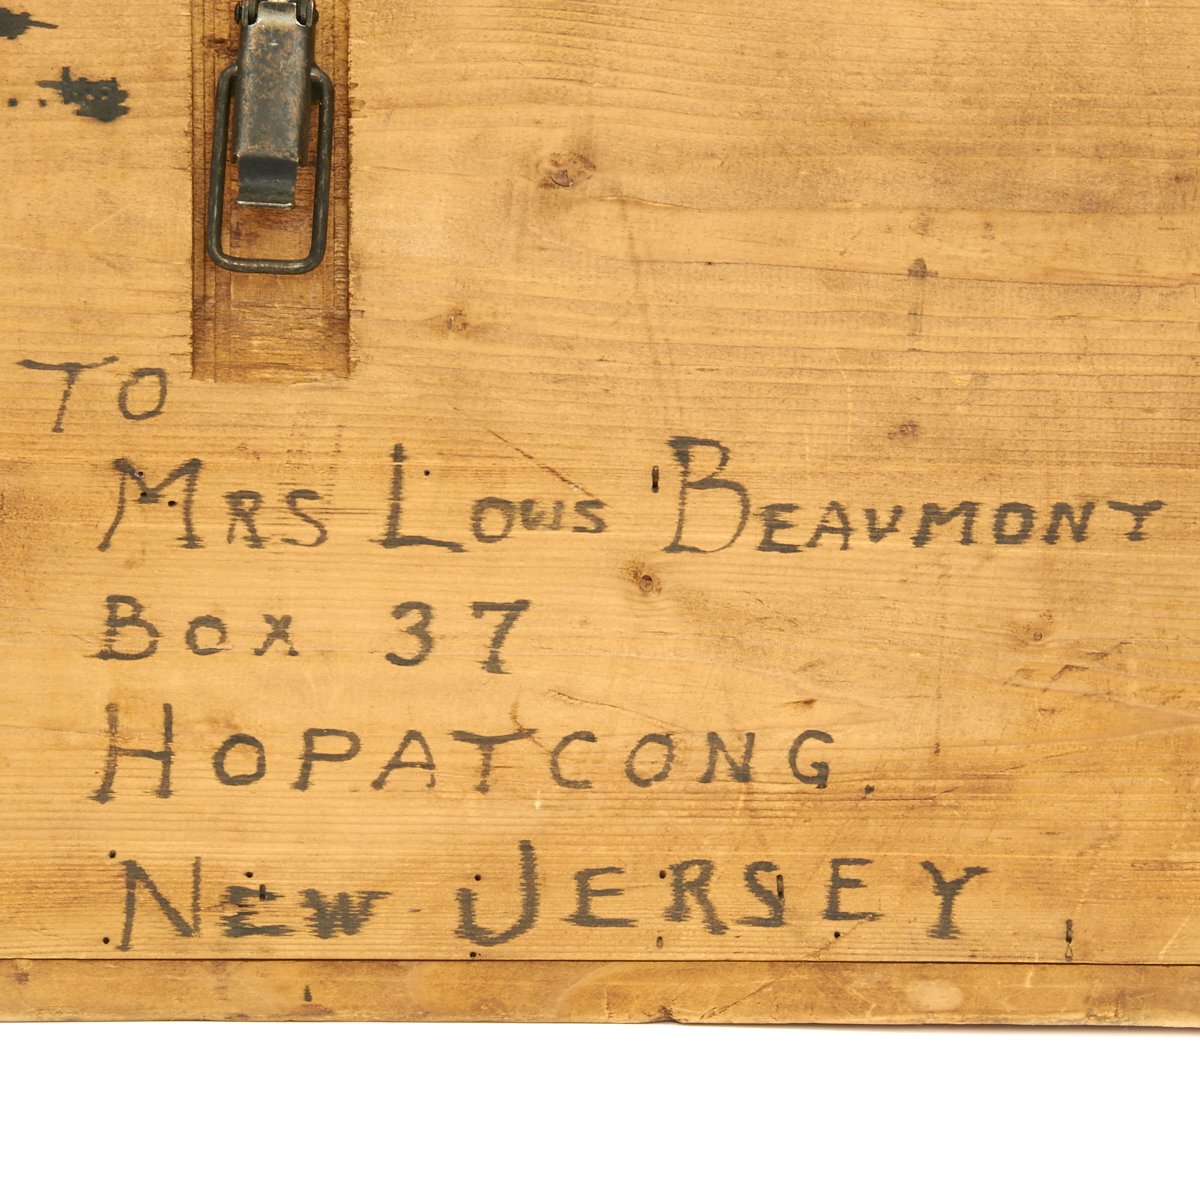 TO
MRS LOUIS BEAUMONT
BOX 37
HOPATCONG
NEW JERSEY